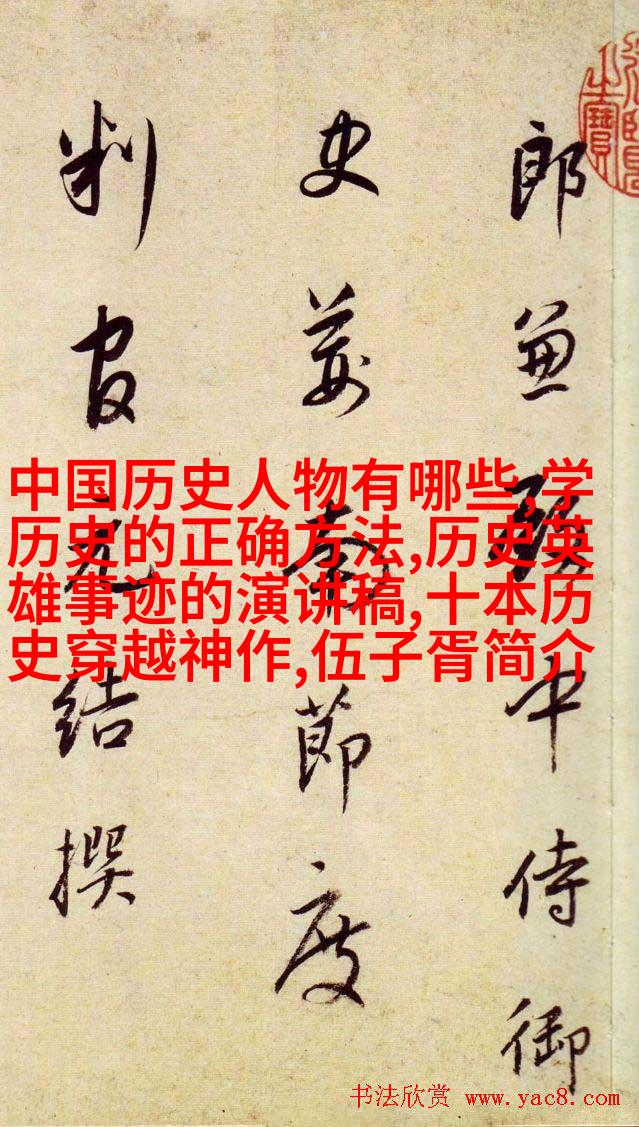 郎兼殿中侍御
史荆南節度
判官元結撰
中国历史人物有哪些,学
历史的正确方法,历史英
雄事迹的演讲稿,十本历
史穿越神作,伍子胥简介
书法欣赏 www.yac8.com